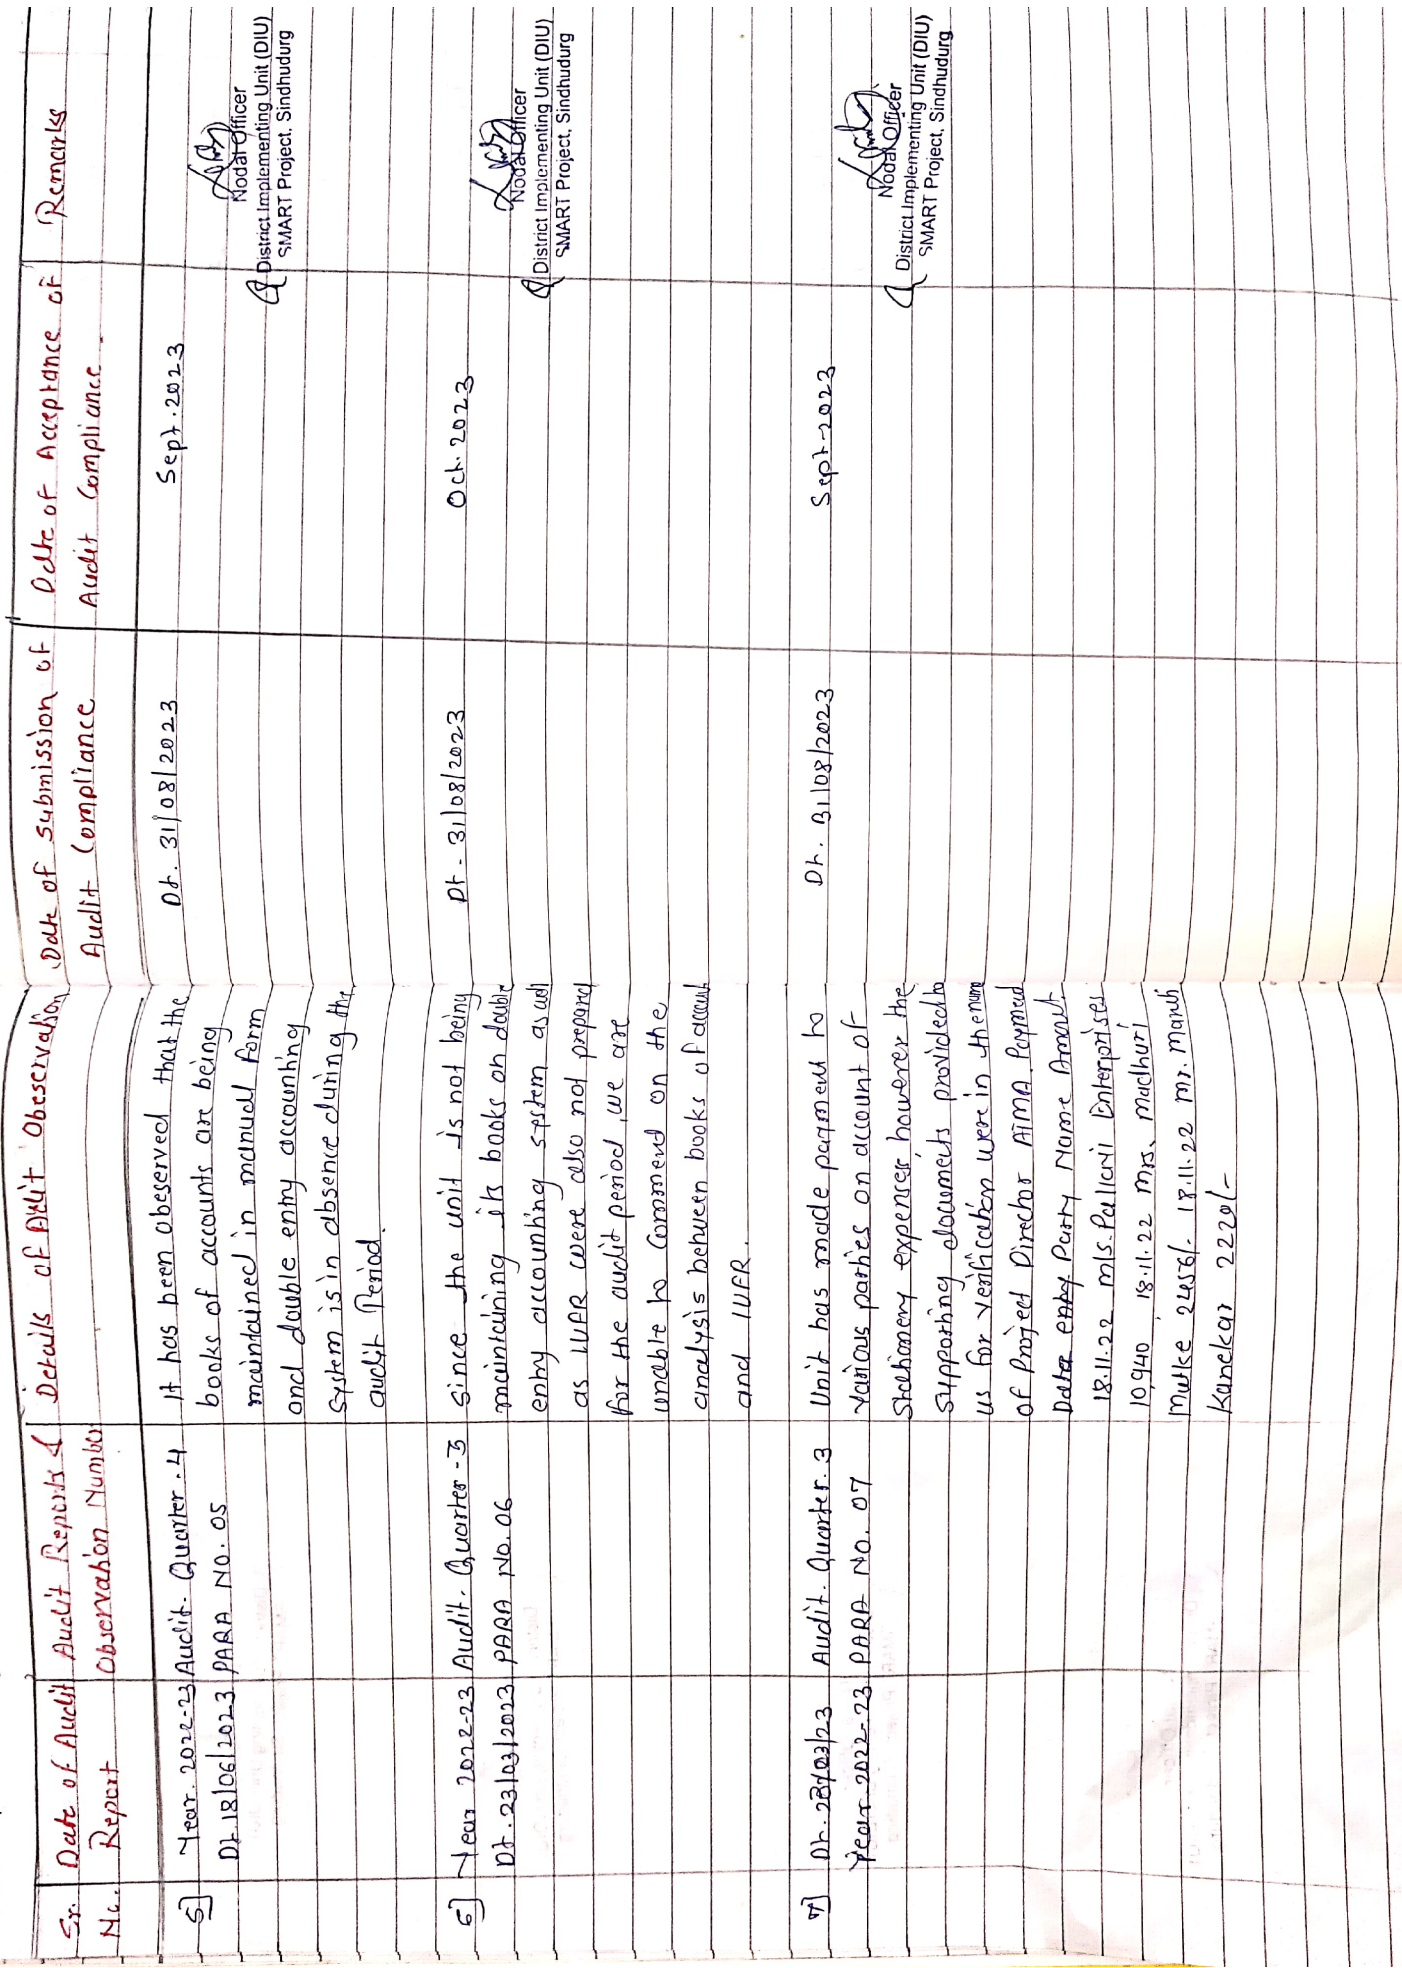 Sr. No.
Date of Audit Report
Audit Reports & Observation Number
Details of Audit Obeservation
Date of submission of Audit Compliance
Date of Acceptance of Audit Compliance
Remarks
5]
Year. 2022-23
Dt. 18/06/2023
Audit. Quarter. 4
PARA NO. 05
It has been obeserved that the
books of accounts are being
maintained in manual form
and double entry accounting
system is in absence during the
audit Period.
Dt. 31/08/2023
Sept. 2023
Nodal Officer
District Implementing Unit (DIU)
SMART Project, Sindhudurg
6]
Year 2022-23
Dt. 23/03/2023
Audit. Quarter - 3
PARA NO. 06
Since the unit is not being
maintaining its books on double
entry accounting system as well
as IUFR were also not prepared
for the audit period, we are
unable to Commend on the
analysis between books of account
and IUFR.
Dt - 31/08/2023
Oct. 2023
Nodal Officer
District Implementing Unit (DIU)
SMART Project, Sindhudurg
7]
Dt. 23/03/23
Year. 2022-23
Audit. Quarter. 3
PARA NO. 07
Unit has made payment to
various parties on account of
Stationery expenses, however the
supporting documents provided to
us for verification were in the name
of Project Director ATMA. Payment
Date Party Name Amount
18.11.22 M/s. Pallavi Enterprises
10,940 18.11.22 Mrs. Madhuri
Mutke 2456/- 18.11.22 Mr. Manas
Kanekar 2220/-
Dt. 31/08/2023
Sept-2023
Nodal Officer
District Implementing Unit (DIU)
SMART Project, Sindhudurg